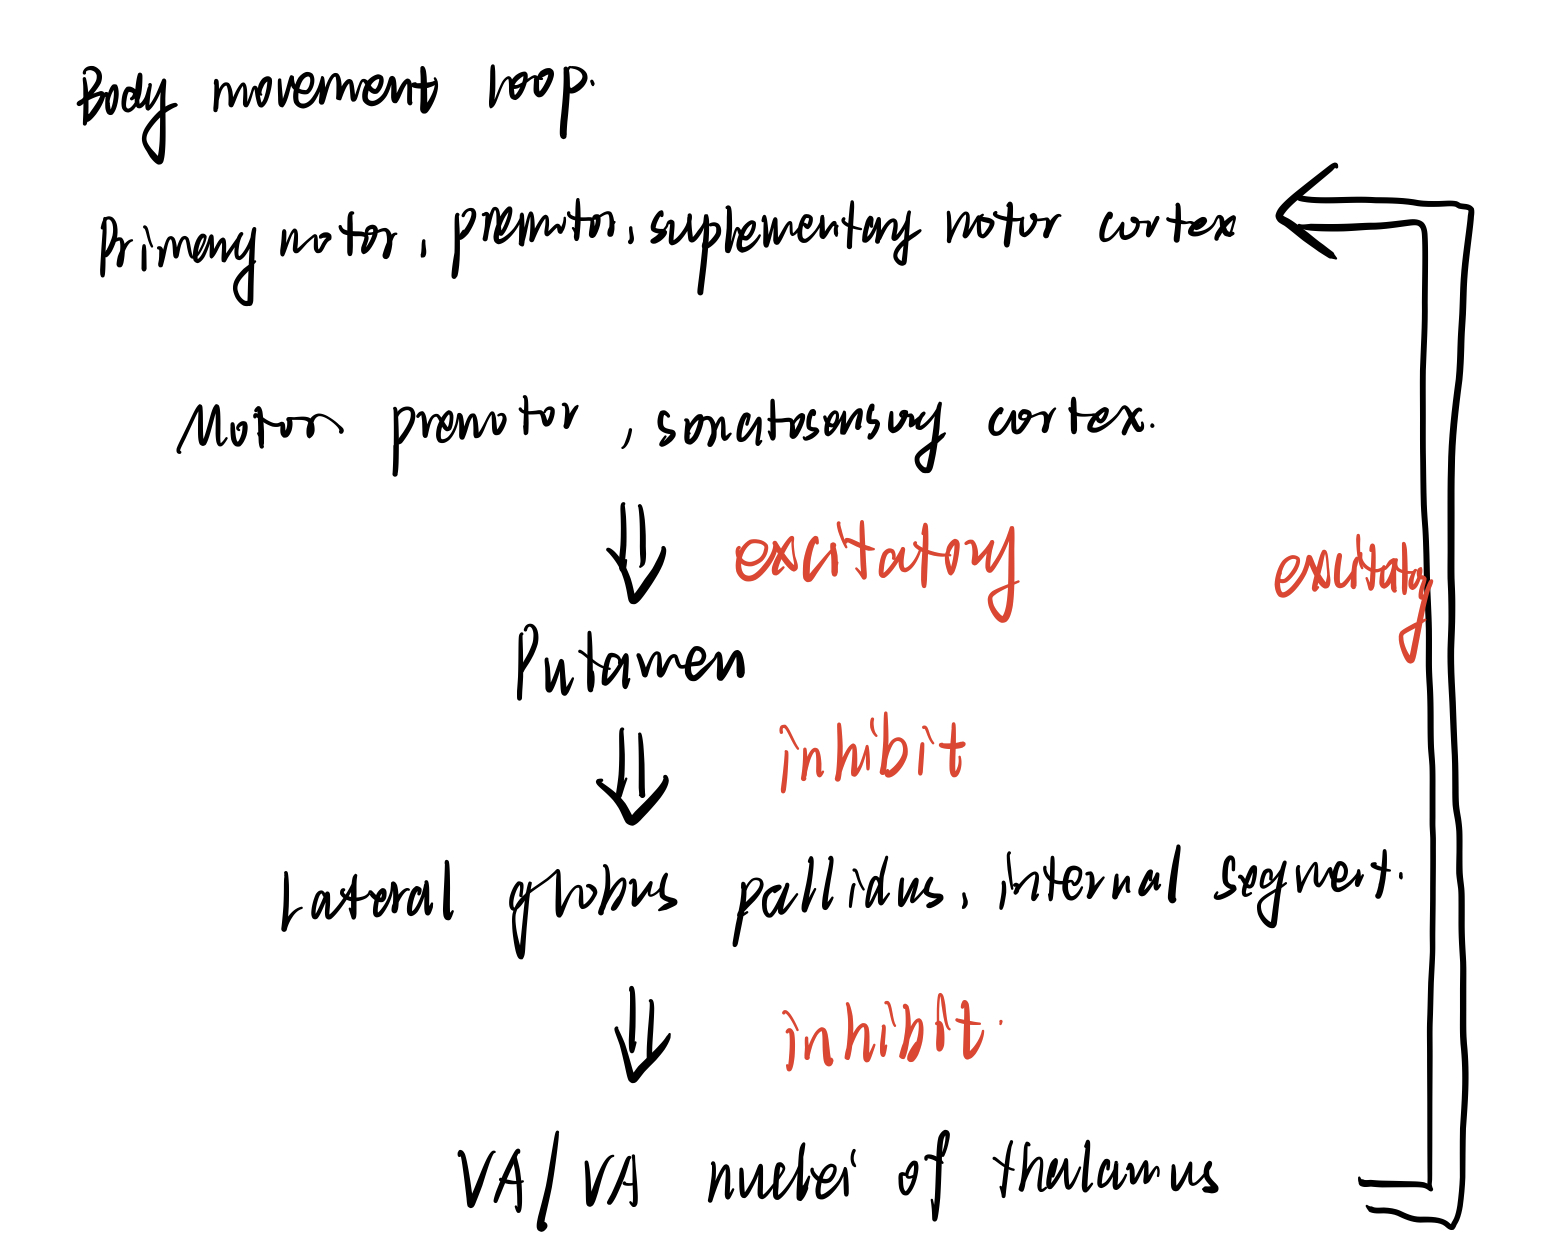 Body movement loop.
Primary motor, premotor, suplementary motor cortex
Motor premotor, somatosensory cortex.
excitatory
excitatory
Putamen
inhibit
Lateral globus pallidus, internal segment.
inhibit.
VA/VA nuclei of thalamus